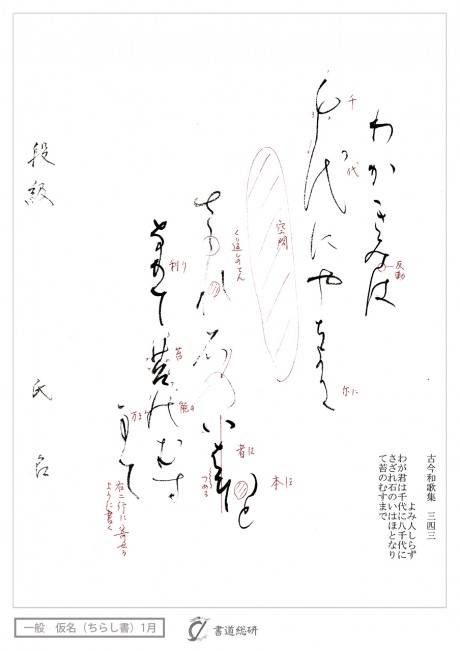 古今和歌集　三四三
よみ人しらず
わが君は千代に八千代に
さざれ石のいはほとなり
て苔のむすまで
わかきみは
反動
千代にやちよに
千
代
尓に
空間
さゝれ石のいはほと
者は
本ほ
つめる
なりて苔のむす
利り
苔
能の
まて
万ま
右二行に寄せる
ように書く
段級　氏名
一般　仮名（ちらし書）1月
書道総研